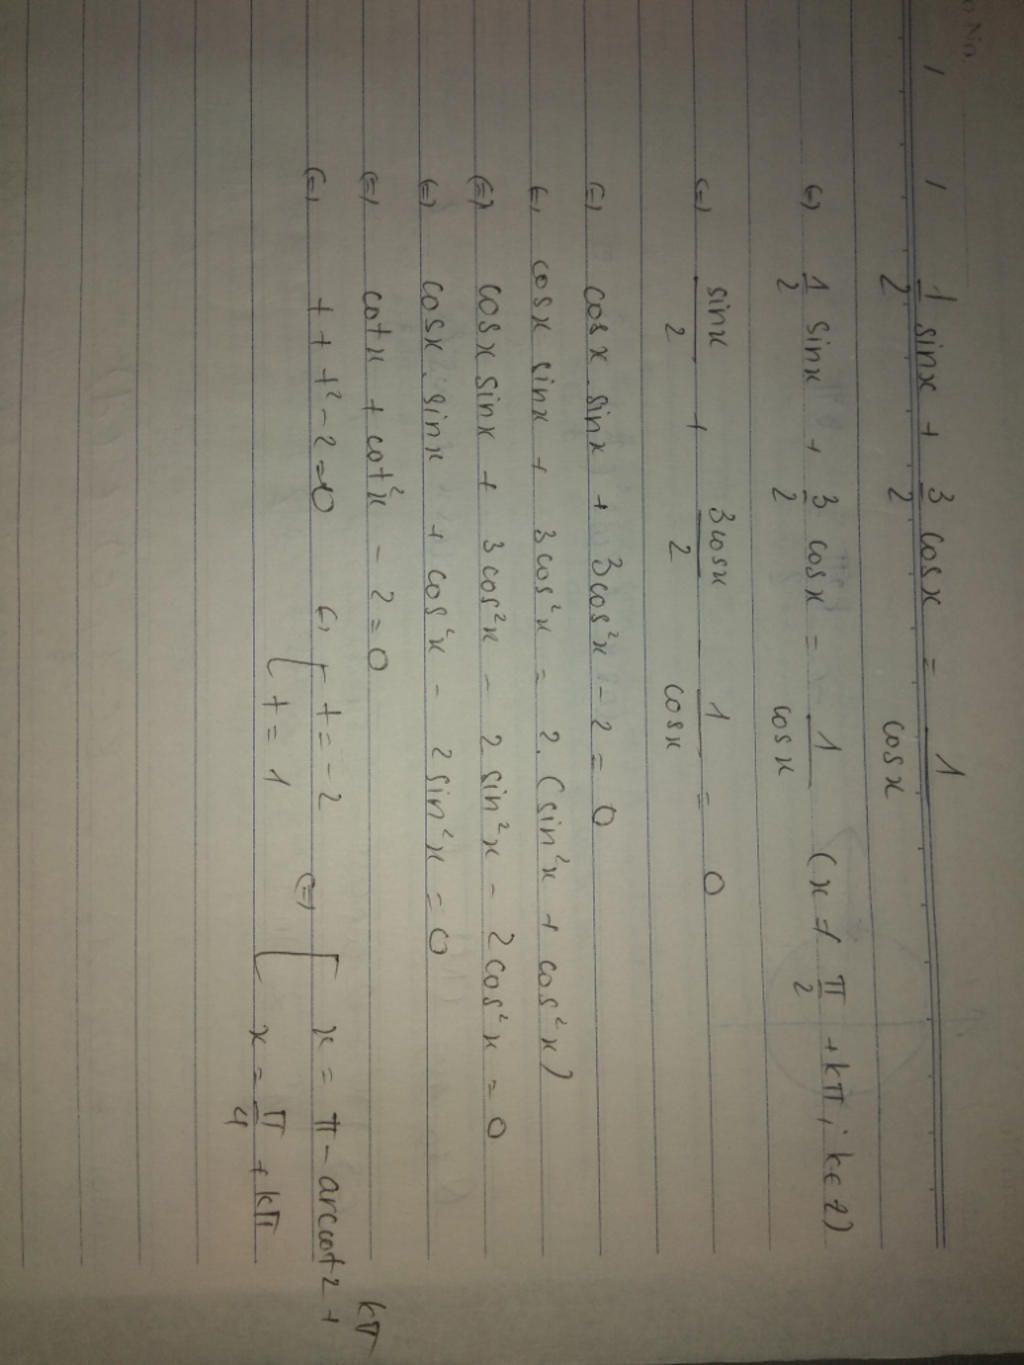 1/2 sinx + 3/2 cosx = 1/cosx
(=) 1/2 sinx + 3/2 cosx = 1/cosx (x ≠ π/2 + kπ ; k ∈ Z)
(=) sinx/2 + 3cosx/2 - 1/cosx = 0
(=) cosx.sinx + 3cos²x - 2 = 0
(=) cosx sinx + 3cos²x = 2.(sin²x + cos²x)
(=) cosx sinx + 3cos²x - 2sin²x - 2cos²x = 0
(=) cosx.sinx + cos²x - 2sin²x = 0
(=) cotx + cot²x - 2 = 0
(=) t + t² - 2 = 0 (=) [ t = -2 (=) [ x = π - arccot2 + kπ
t = 1 x = π/4 + kπ